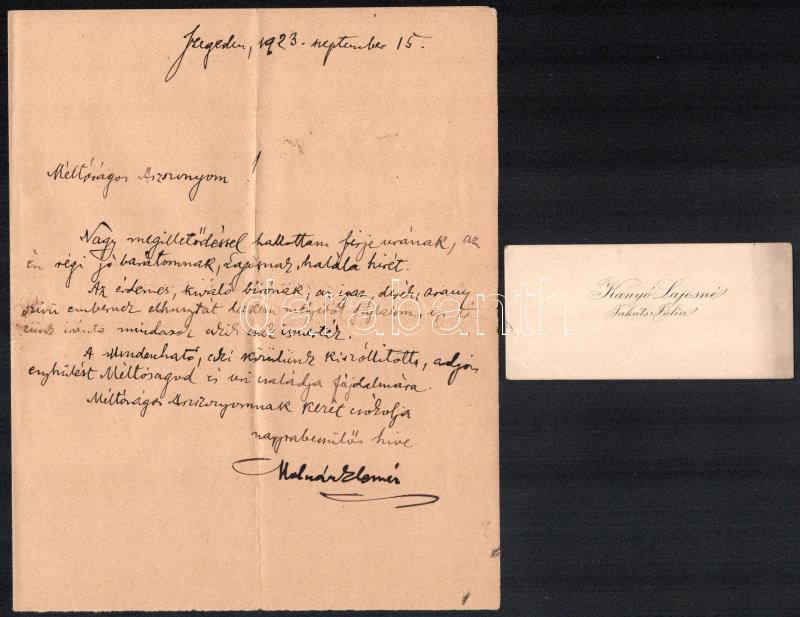 Szeged, 1923. september 15.
Méltóságos Asszonyom!
Nagy megilletődéssel hallottam férje urának, az
én régi jó barátomnak, Lajosnak, halála hírét.
Az érdemes, kiváló bírónak, az igaz, derék, arany
szívű embernek elhunytát lelkem mélyéből fájlalom, így
iránta mindazok akik csak ismerték.
A Mindenható, aki körülünk kiszóllította, adjon
enyhülést Méltóságod és úri családja fájdalmára.
Méltóságos Asszonyomnak kezét csókolja
nagyrabecsülős híve
Molnár Elemér
Kanyó Lajosné
Takáts Júlia
darabanth